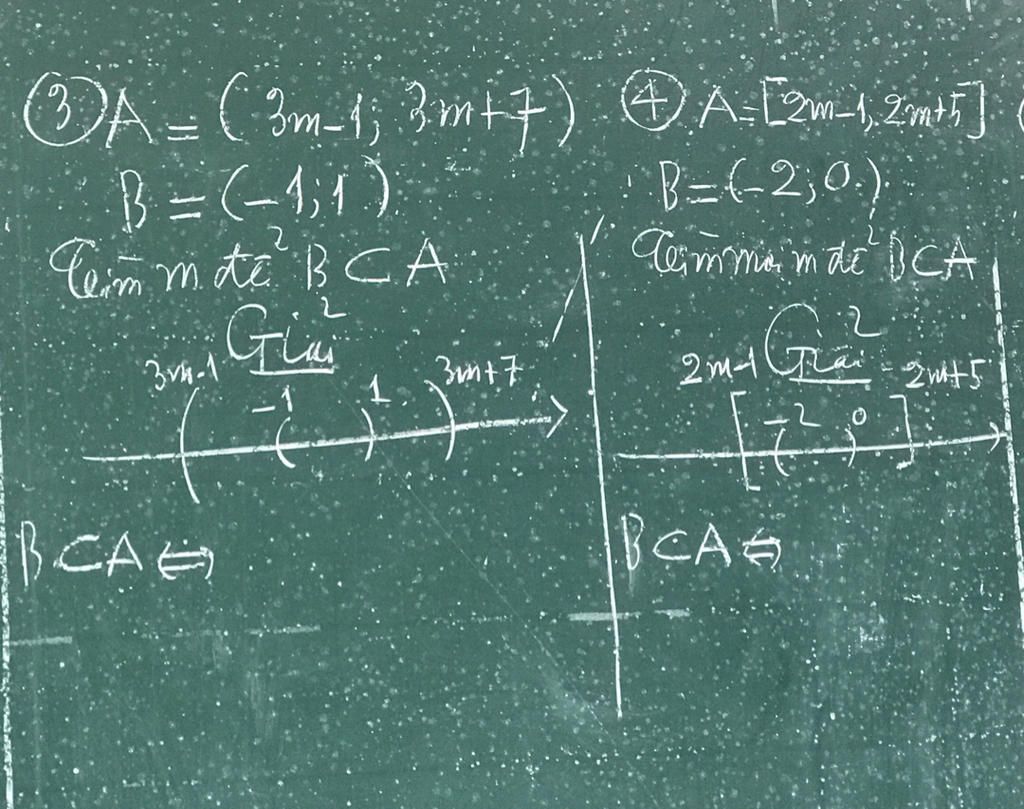 ③ A = (3m-1; 3m+7)
B = (-1; 1)
Tìm m để B ⊂ A
Giải
3m-1 -1 1 3m+7
( ( ) )
B ⊂ A ⇔
④ A = [2m-1; 2m+5]
B = (-2; 0)
Tìm m để B ⊂ A
Giải
2m-1 -2 0 2m+5
[ ( ) ]
B ⊂ A ⇔